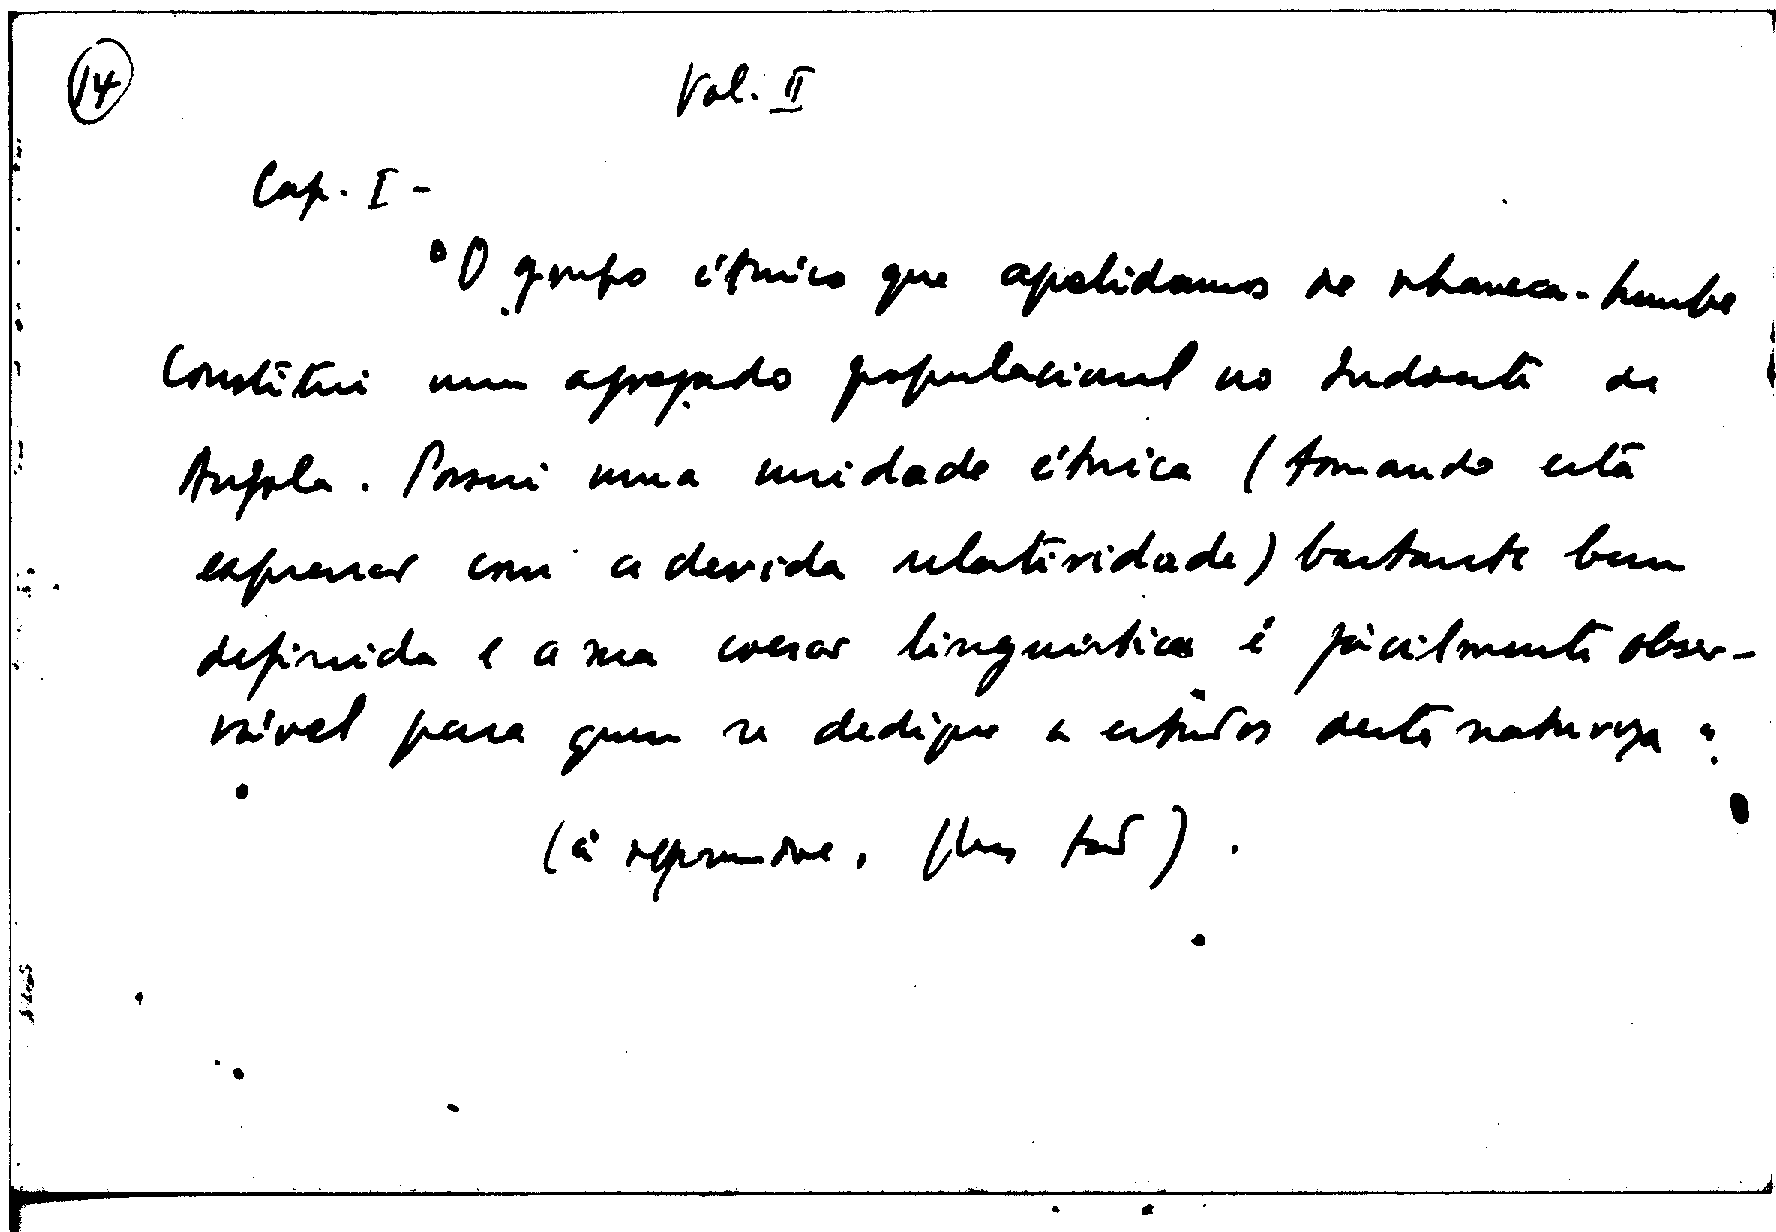 14
Vol. II
Cap. I -
"O grupo étnico que apelidamos de nhaneca-humbe
constitui um agregado populacional no Sudoeste de
Angola. Possui uma unidade étnica (tomando esta
expressão com a devida relatividade) bastante bem
definida e a sua coesão linguística é fàcilmente obser-
vável para quem se dedique a estudos desta natureza".
(à reprendre, plus tard).